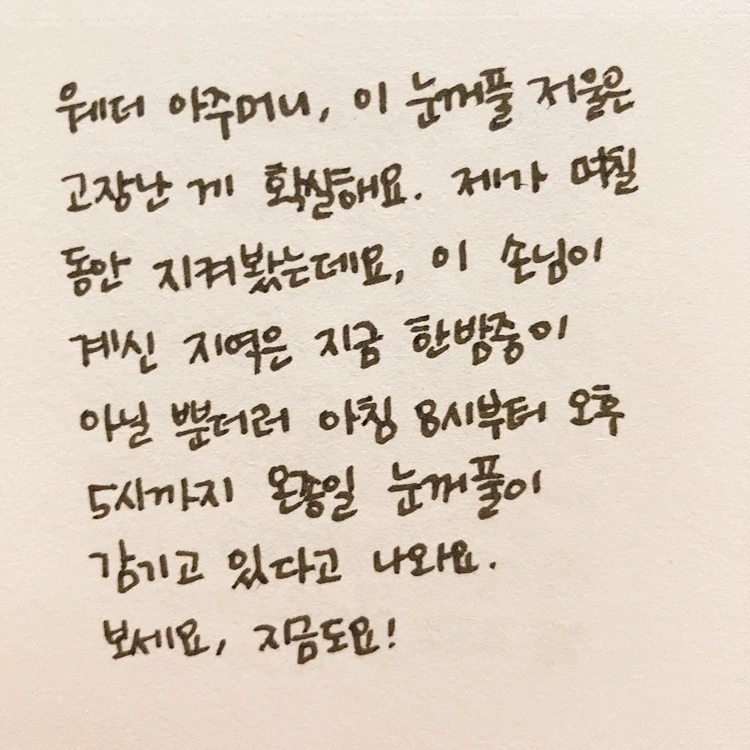 웨더 아주머니, 이 눈꺼풀 저울은
고장난 게 확실해요. 제가 며칠
동안 지켜봤는데요, 이 손님이
계신 지역은 지금 한밤중이
아닐 뿐더러 아침 8시부터 오후
5시까지 온종일 눈꺼풀이
감기고 있다고 나와요.
보세요, 지금도요!